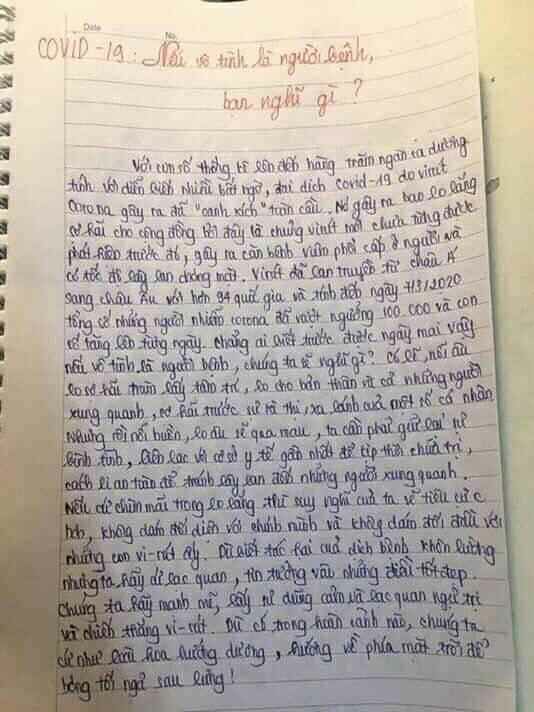 Date No.
COVID-19: Nếu vô tình là người bệnh,
bạn nghĩ gì?
Với con số thống kê lên đến hàng trăm ngàn ca dương
tính với diễn biến nhiều bất ngờ, đại dịch covid-19 do virut
corona gây ra đã "oanh kích" toàn cầu. Nó gây ra bao lo lắng
sợ hãi cho cộng đồng bởi đây là chủng virut mới chưa từng được
phát hiện trước đó, gây ra căn bệnh viêm phổi cấp ở người và
có tốc độ lây lan chóng mặt. Virut đã lan truyền từ châu Á
sang châu Âu với hơn 94 quốc gia và tính đến ngày 7/3/2020
tổng số những người nhiễm corona đã vượt ngưỡng 100.000 và con
số tăng lên từng ngày. Chẳng ai biết trước được ngày mai vậy
nếu vô tình là người bệnh, chúng ta sẽ nghĩ gì? Có lẽ, nỗi âu
lo sợ hãi tràn lấy tâm trí, lo cho bản thân và cả những người
xung quanh, sợ hãi trước sự kì thị, xa lánh của một số cá nhân
Nhưng rồi nỗi buồn, lo âu sẽ qua mau, ta cần phải giữ lại sự
bình tĩnh, liên lạc với cơ sở y tế gần nhất để kịp thời chữa trị,
cách li an toàn để tránh lây lan đến những người xung quanh.
Nếu cứ chìm mãi trong lo lắng thì suy nghĩ của ta về tiêu cực
hơn, không dám đối diện với chính mình và không dám đối đầu với
những con vi-rút ấy. Dù biết tác hại của dịch bệnh khôn lường
nhưng ta hãy cứ lạc quan, tin tưởng vào những điều tốt đẹp.
Chúng ta hãy mạnh mẽ, lấy sự dũng cảm và lạc quan ngự trị
và chiến thắng vi-rút. Dù có trong hoàn cảnh nào, chúng ta
cứ như loài hoa hướng dương, hướng về phía mặt trời để
bóng tối ngả sau lưng!